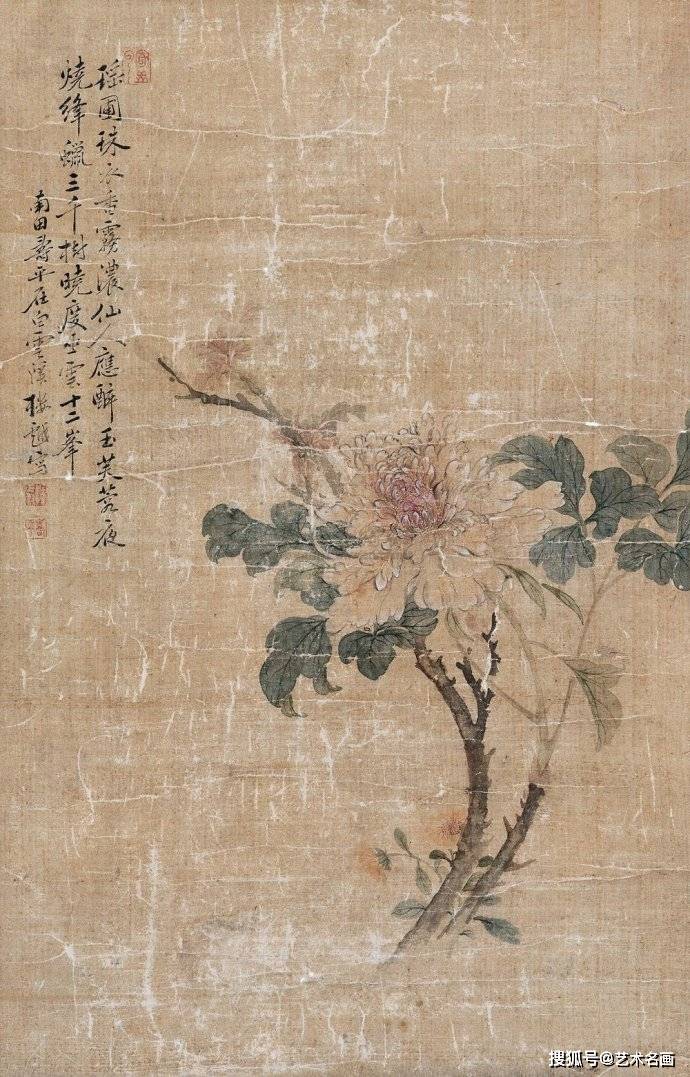 瑤圃珠衣香霧濃仙人應醉玉芙蓉夜
燒絳蠟三千樹曉度巫雲十二峯
南田壽平在白雲溪樓戲寫
搜狐号@艺术名画